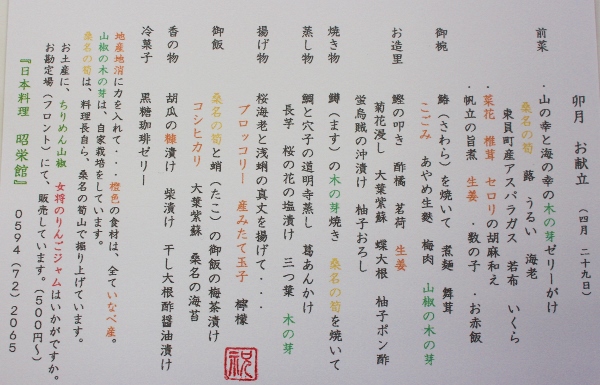 卯月　お献立　（四月　二十九日）
前菜　・山の幸と海の幸の木の芽ゼリーがけ
桑名の筍　蕗　うるい　海老
東員町産アスパラガス　若布　いくら
・菜花　椎茸　セロリの胡麻和え
・帆立の旨煮　生姜　・数の子　・お赤飯
御椀　鰆（さわら）を焼いて　煮麺　舞茸
こごみ　あやめ生麩　梅肉　山椒の木の芽
お造里　鰹の叩き　酢橘　茗荷　生姜
菊花浸し　大葉紫蘇　蝶大根　柚子ポン酢
蛍烏賊の沖漬け　柚子おろし
焼き物　鱒（ます）の木の芽焼き　桑名の筍を焼いて
蒸し物　鯛と穴子の道明寺蒸し　葛あんかけ
長芋　桜の花の塩漬け　三つ葉　木の芽
揚げ物　桜海老と浅蜊の真丈を揚げて・・・・
ブロッコリー　産みたて玉子　檸檬
御飯　桑名の筍と蛸（たこ）の御飯の梅茶漬け
コシヒカリ　大葉紫蘇　桑名の海苔
香の物　胡瓜の糠漬け　柴漬け　干し大根酢醤油漬け
冷菓子　黒糖珈琲ゼリー
地産地消に力を入れて・・・橙色の食材は、全ていなべ産。
山椒の木の芽は、自家栽培をしています。
桑名の筍は、料理長自ら、桑名の筍山で掘り上げています。
お土産に、ちりめん山椒　女将のりんごジャムはいかがですか。
お勘定場（フロント）にて、販売しています。（５００円～）
『日本料理　昭栄館』　０５９４（７２）２０６５
祝